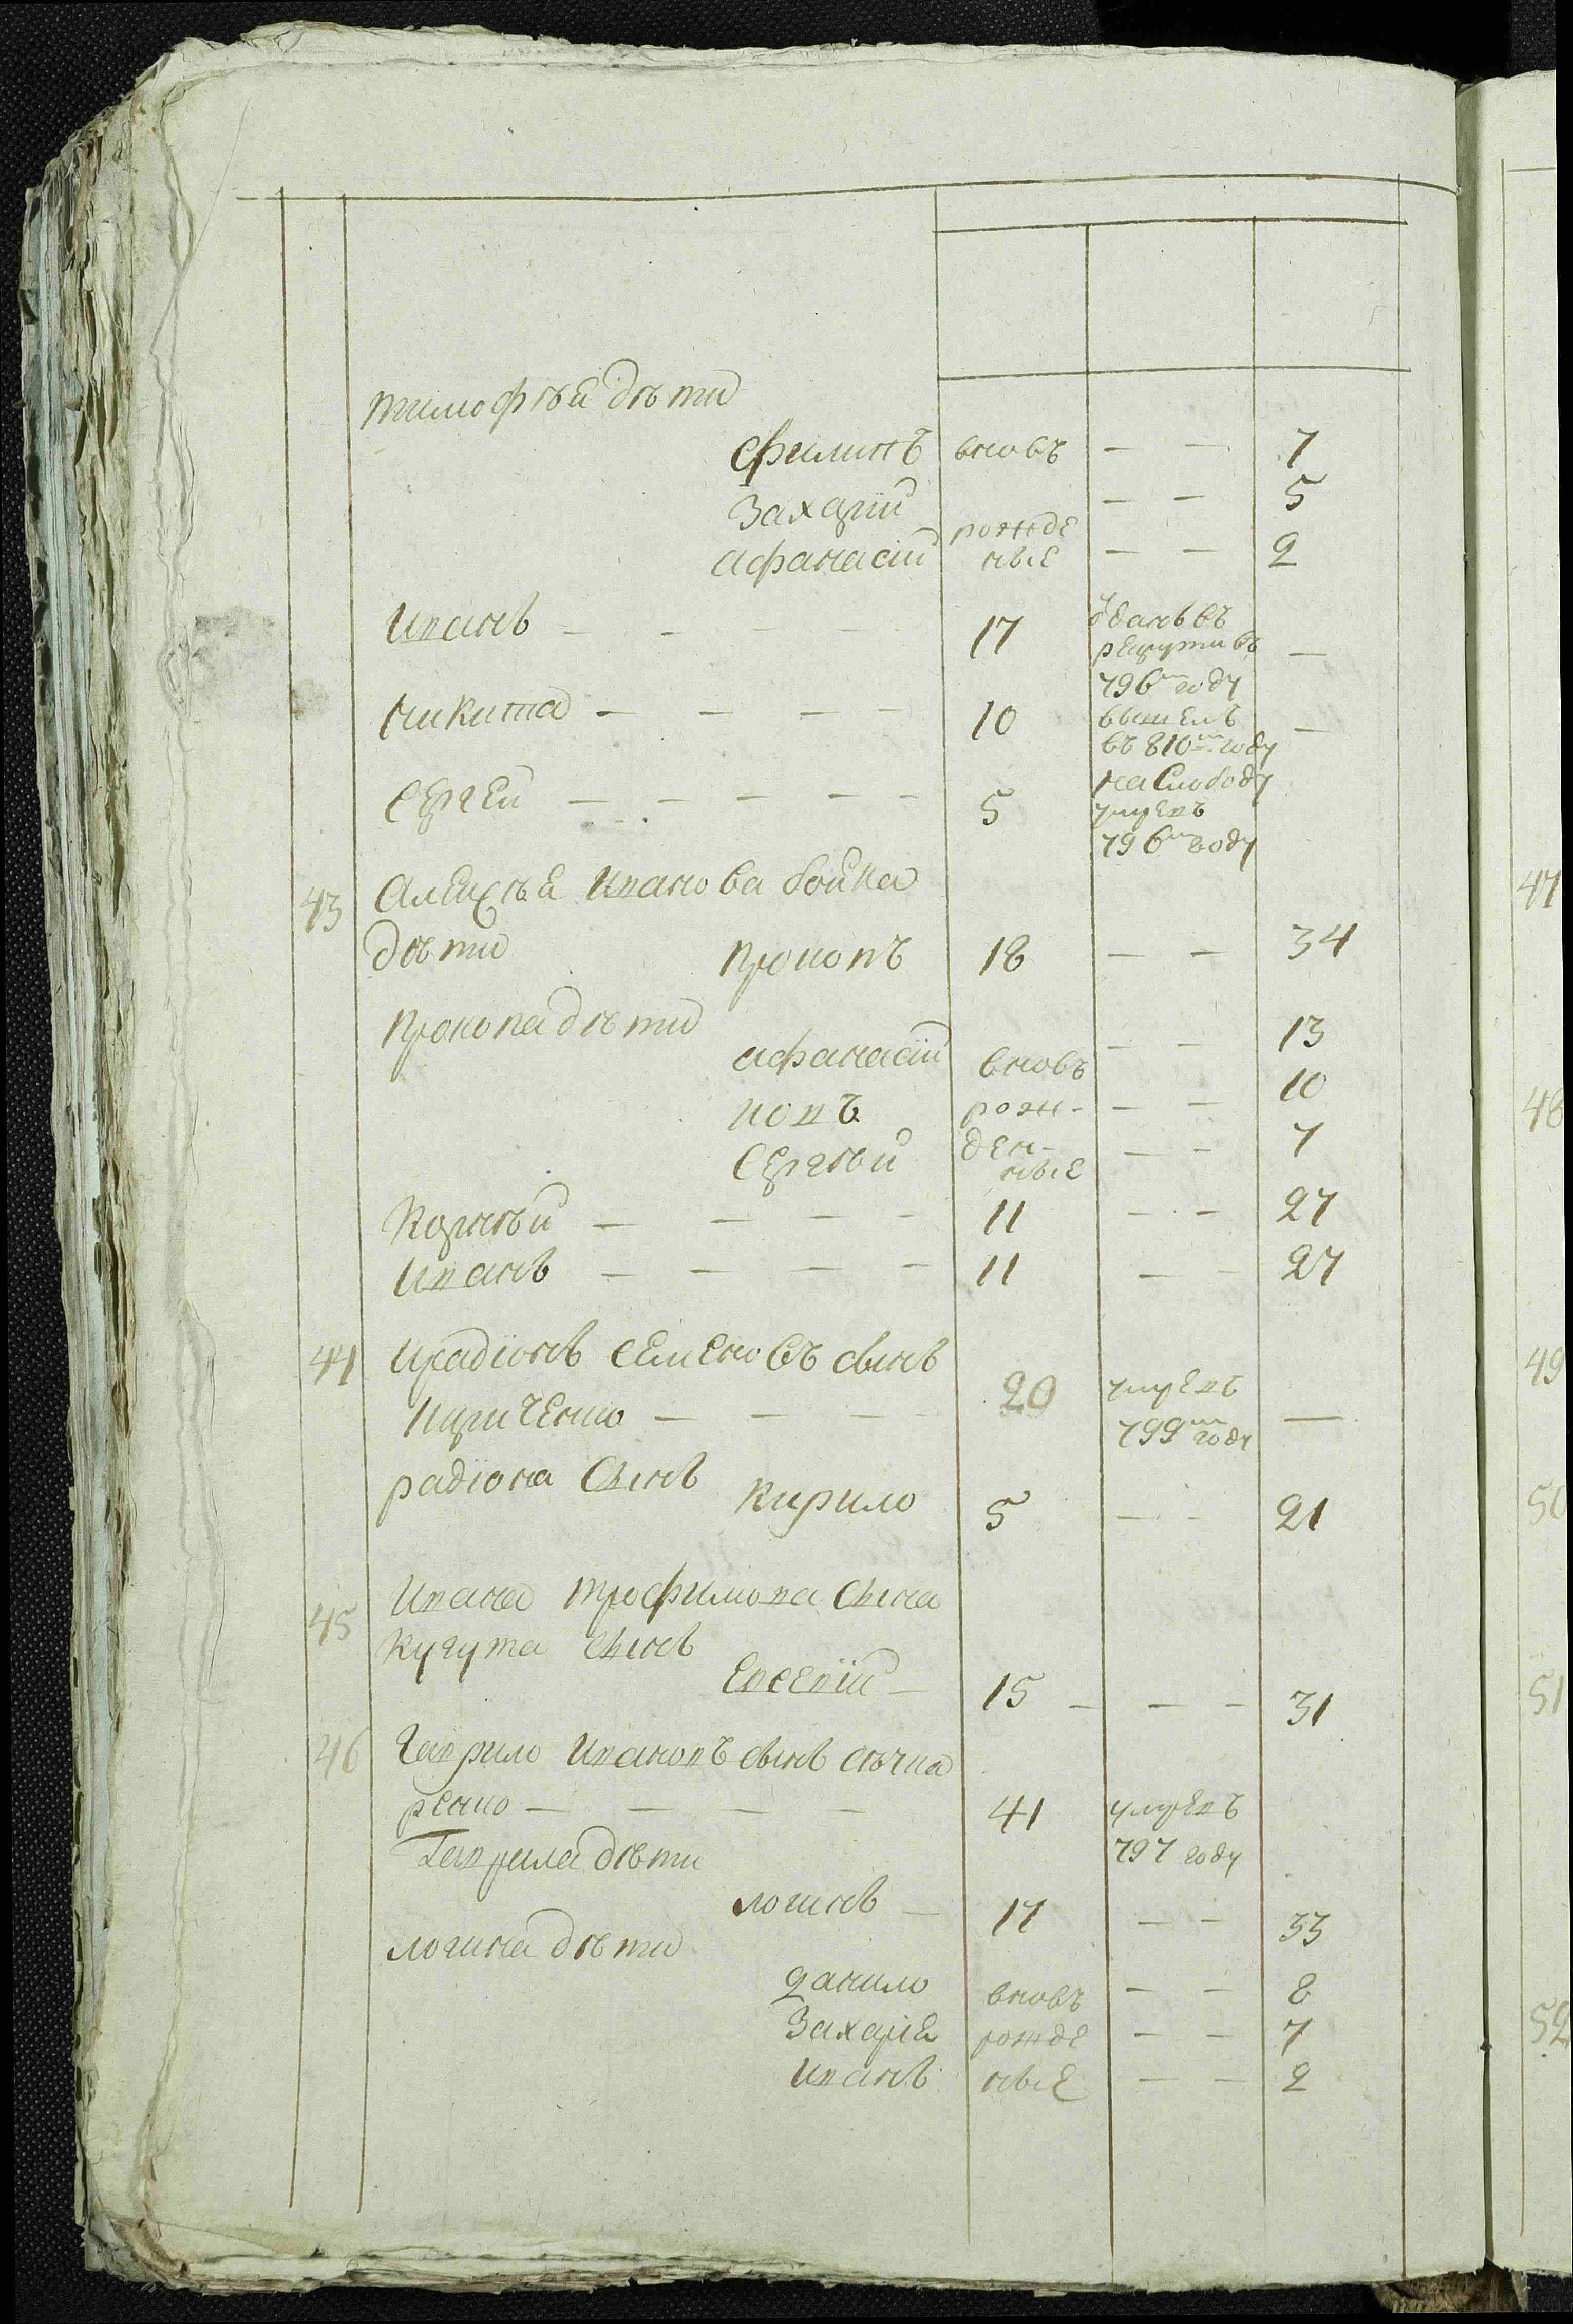 тимофѣя дѣти
филипъ вновъ — — 7
Захарій — — 5
рожде
афанасій ные — — 2
Иванъ — — — — 17 ѡданъ въ
рекруты въ —
796м году
никита — — — — 10 вышелъ —
въ 810м году
на Слободу
Сергей — — — — — 5 умре въ
796м году
43 Алексѣя Иванова бойка
дѣти Прокопъ 18 — — 34
Прокопа дѣти
афанасій вновъ — — 13
іовъ рож- — — 10
Сергѣй ден- — — 7
ные
Корнѣй — — — — 11 — — 27
Иванъ — — — — 11 — — 27
44 Ирадіонъ Семеновъ сынъ
Кириченко — — — 20 умре въ —
799м году
радіона Сынъ Кирило 5 — — 21
45 Ивана трофимова Сына
Кугута Сынъ
Евсевій — 15 — — — 31
46 Гаврило Ивановъ сынъ
ренко — — — — 41 умре въ
797 году
Гаврила дѣти
логинъ — 17 — — 33
логина дѣти
данило вновъ — — 8
Захаріе рожде — — 7
Иванъ ные — — 2
47
48
49
50
51
52